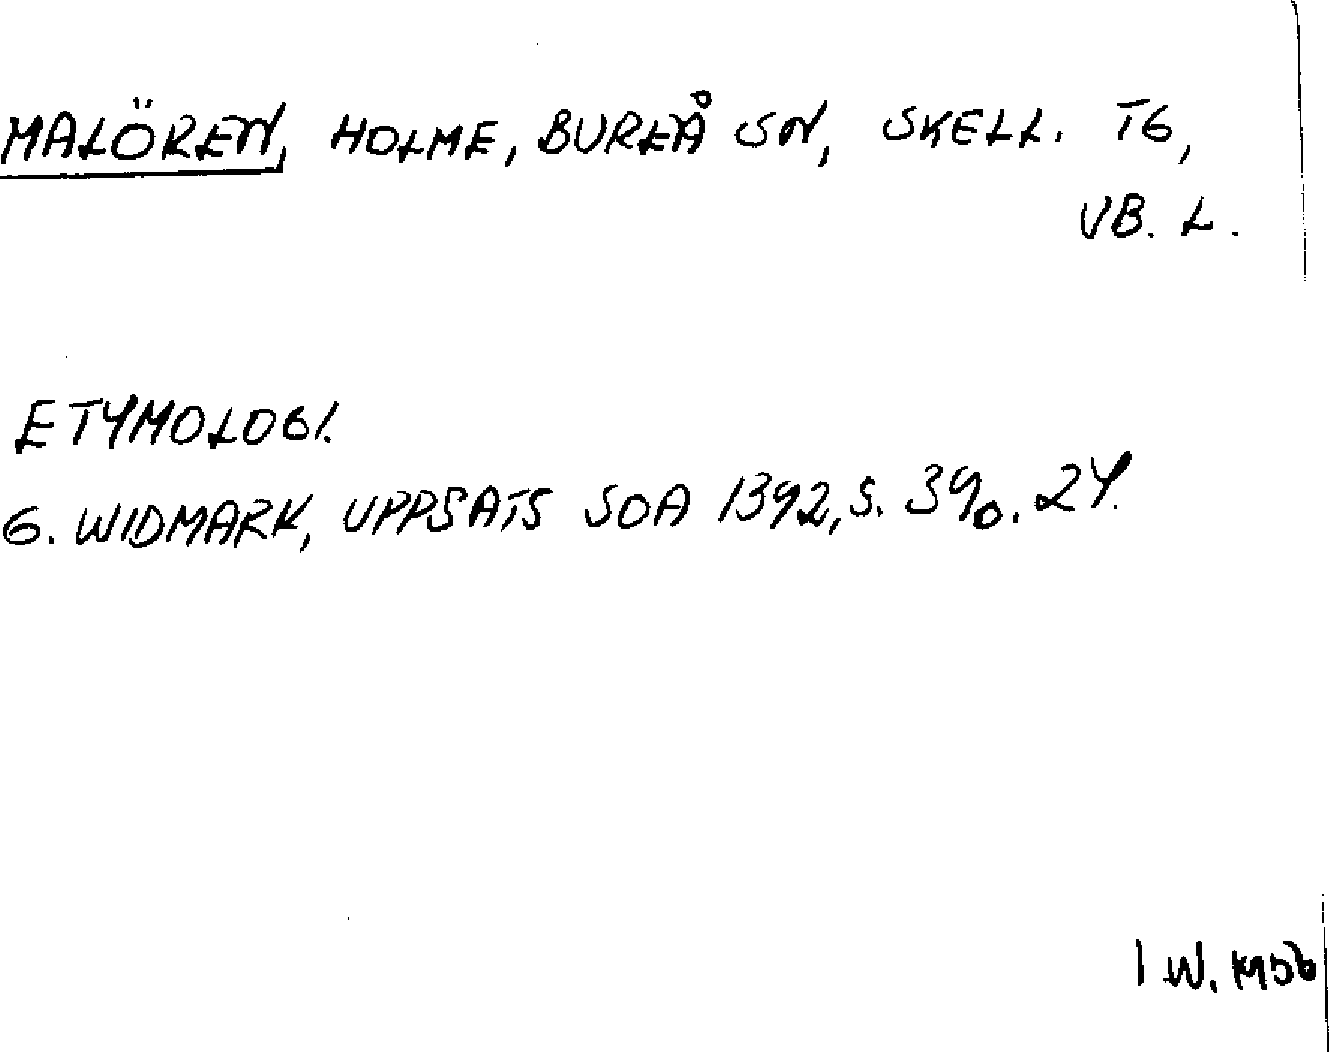 MALÖREN, HOLME, BUREÅ SN, SKELL. TG,
VB. L.
ETYMOLOGI.
G. WIDMARK, UPPSATS SOA 1392, S. 39 o. 24.